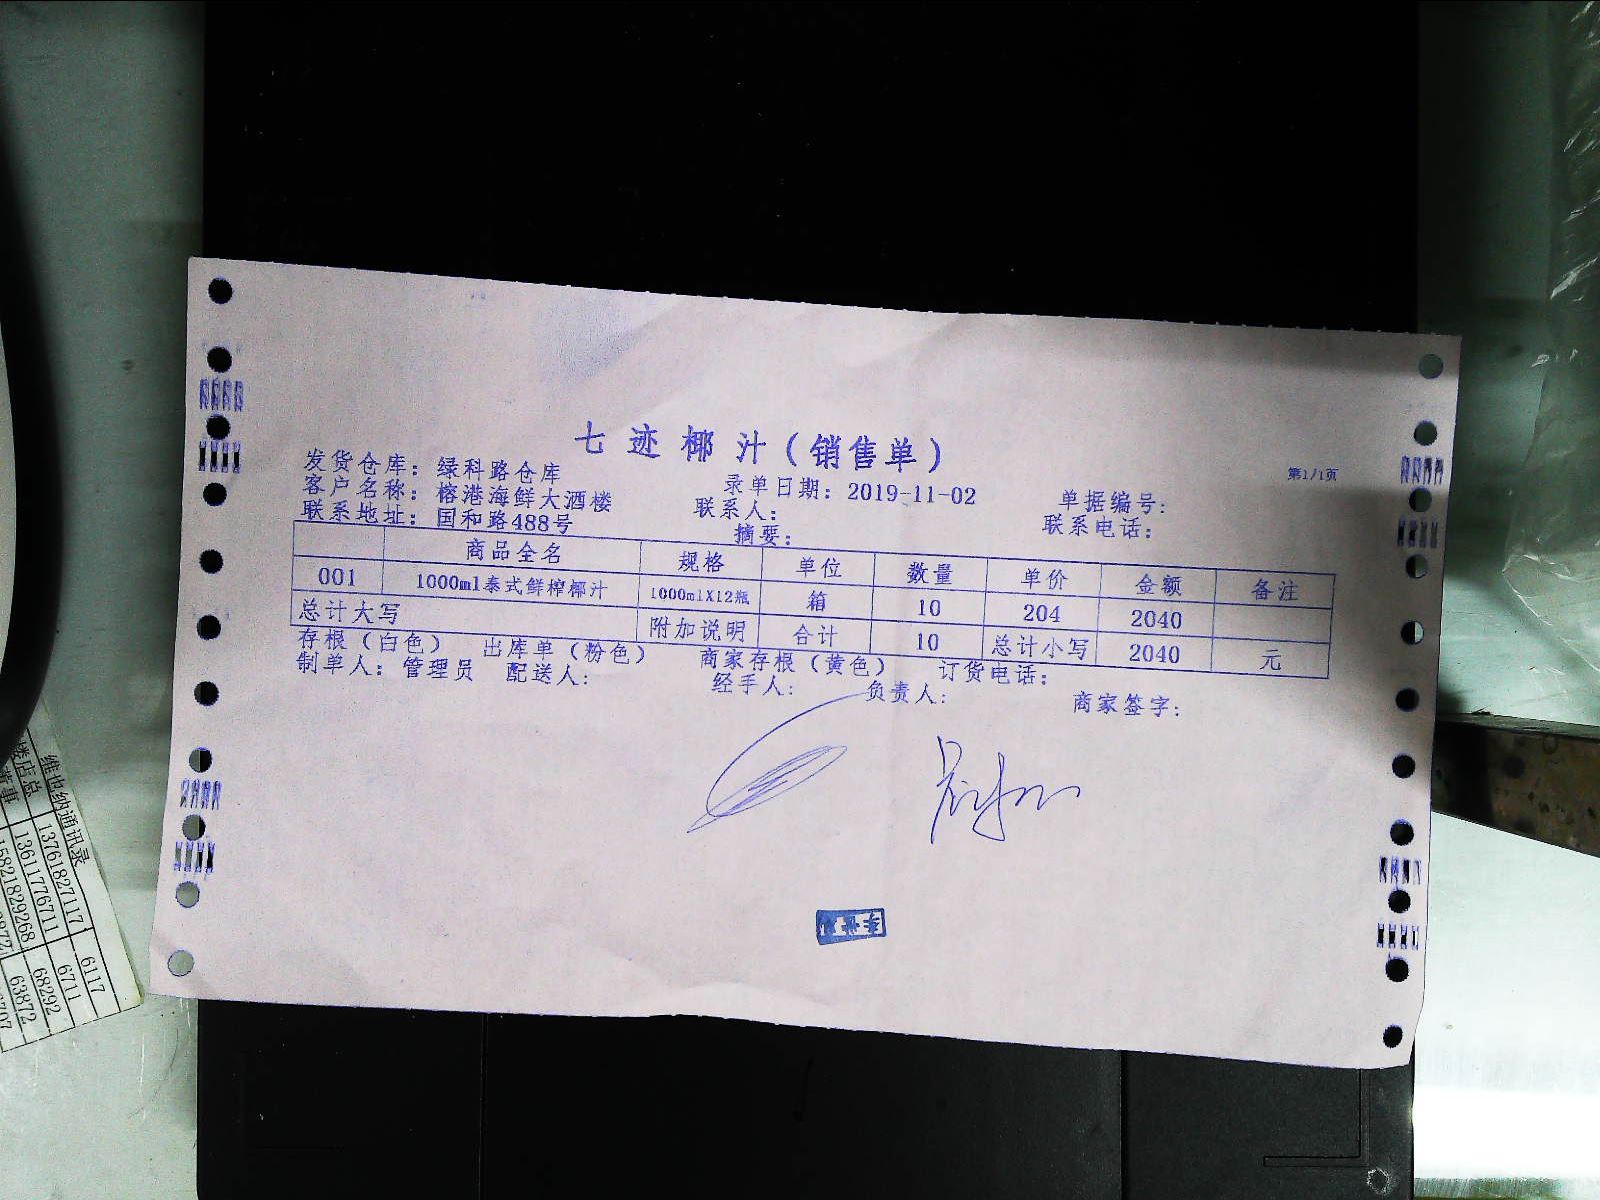 七迹椰汁(销售单)
第1/1页
发货仓库: 绿科路仓库 录单日期: 2019-11-02 单据编号:
客户名称: 榕港海鲜大酒楼 联系人: 联系电话:
联系地址: 国和路488号 摘要:
商品全名 规格 单位 数量 单价 金额 备注
001 1000ml泰式鲜榨椰汁 1000mlX12瓶 箱 10 204 2040
总计大写 附加说明 合计 10 总计小写 2040 元
存根(白色) 出库单(粉色) 商家存根(黄色) 订货电话:
制单人: 管理员 配送人: 经手人: 负责人: 商家签字:
维也纳通讯录
楼店总 13761827117 6117
董事 13611776711 6711
15821829268 68292
63872